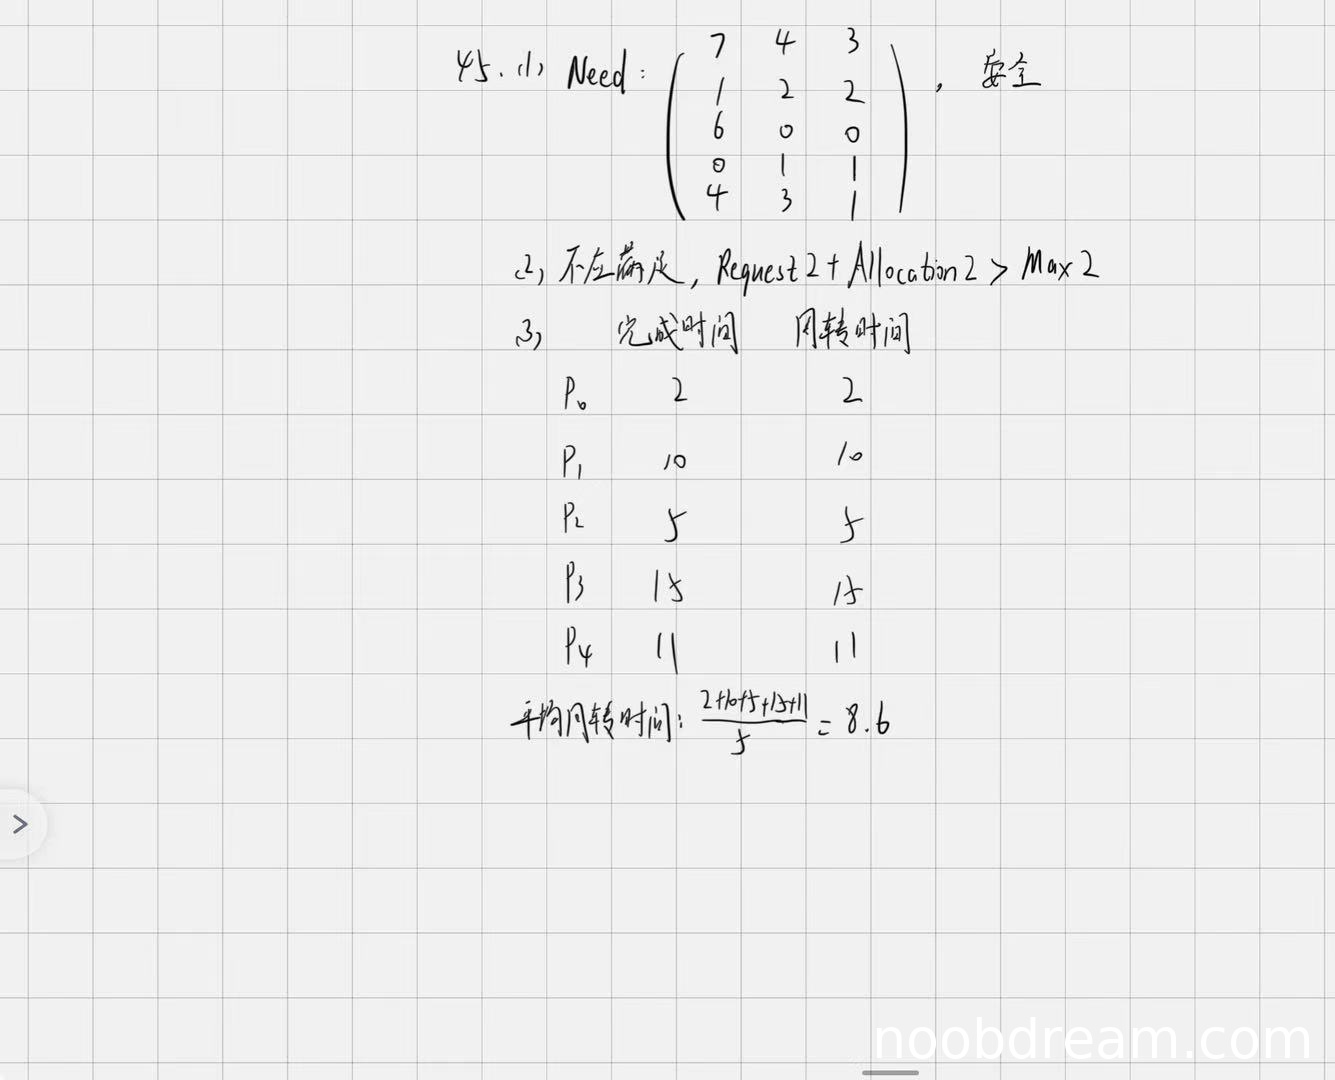 45. (1) Need: ( 7 4 3
1 2 2
6 0 0
0 1 1
4 3 1 ) , 安全
(2) 不应满足, Request2 + Allocation2 > Max2
(3) 完成时间 周转时间
P0 2 2
P1 10 10
P2 5 5
P3 15 15
P4 11 11
平均周转时间: (2+10+5+15+11)/5 = 8.6
noobdream.com